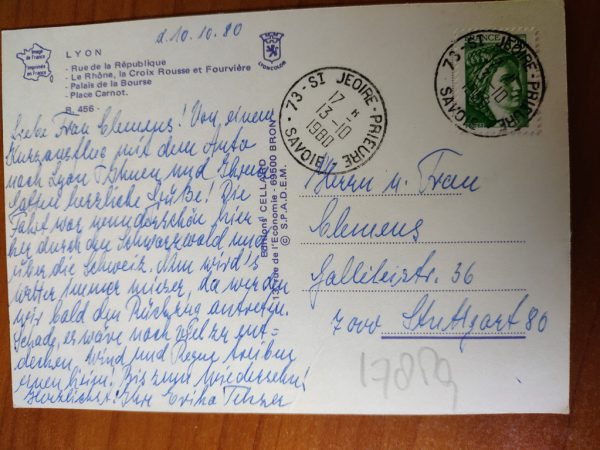 d. 10.10.80
Image de France
imprimée en France
LYON
- Rue de la République
- Le Rhône, la Croix Rousse et Fourvière
- Palais de la Bourse
- Place Carnot.
R. 456 -
LYONCOLOR
Liebe Frau Clemens! Von einem
Kurzausflug mit dem Auto
nach Lyon Ihnen und Ihrem
herzliche Grüße! Die
Fahrt war wunderschön hier
her durch den Schwarzwald und
über die Schweiz. Nun wird's
Wetter immer mieser, da werden
wir bald den Rückzug antreten.
Schade, es wäre noch viel zu ent-
decken, Wind und Regen treiben
einen heim! Bis zum Wiedersehn!
Herzlichst: Ihre Erika
Editions CELLARD
rue de l'Economie - 69500 BRON
© S.P.A.D.E.M.
73 - ST JEOIRE - PRIEURE
17 H
13-10
1980
SAVOIE
73 - ST JEOIRE - PRIEURE
13-10
SAVOIE
Herrn u. Frau
Clemens
36
7000 Stuttgart 80